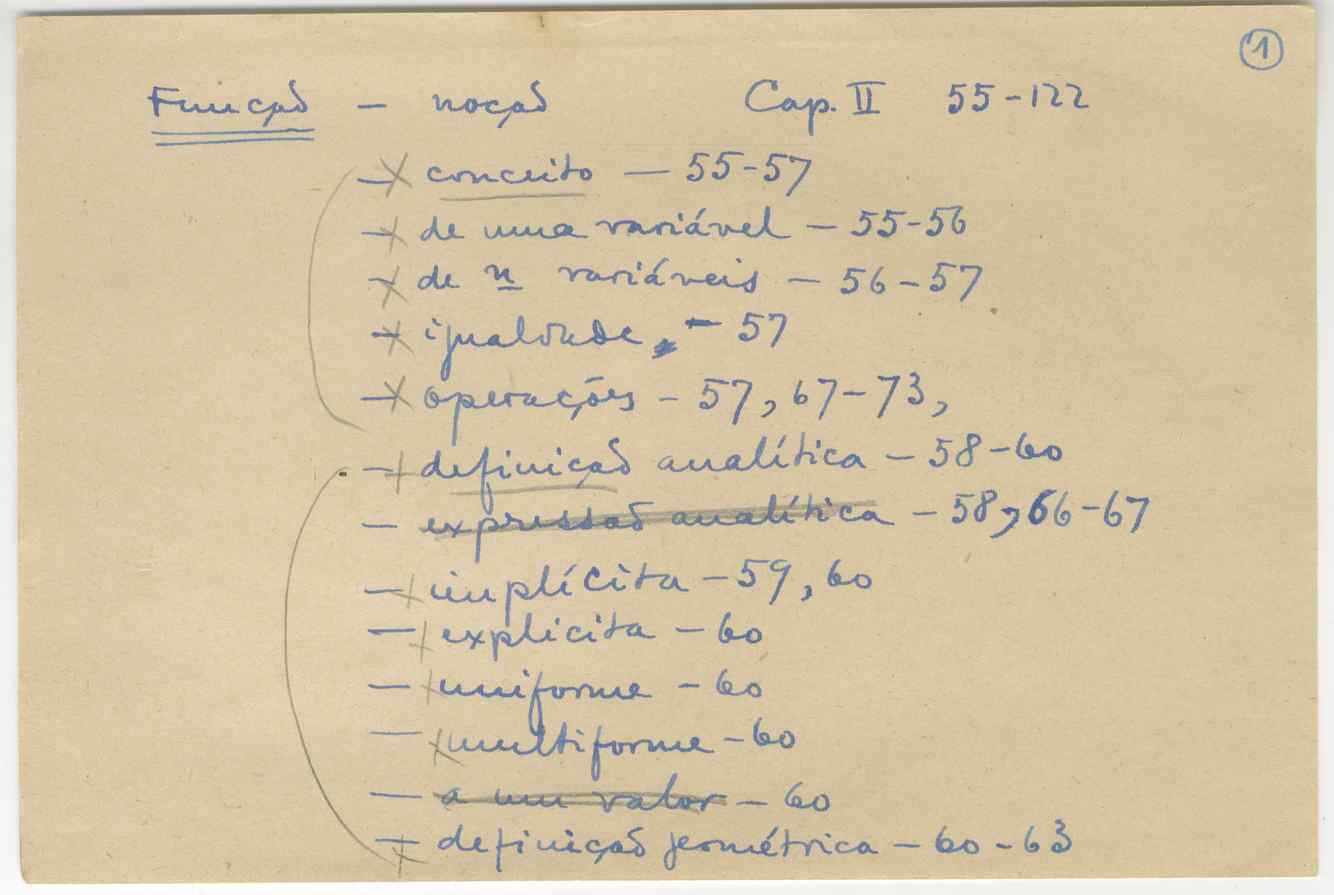 1
Função – noção Cap. II 55-122
– conceito – 55-57
– de uma variável – 55-56
– de n variáveis – 56-57
– igualdade, – 57
– operações – 57, 67-73,
– definição analítica – 58-60
– expressão analítica – 58, 66-67
– implícita – 59, 60
– explícita – 60
– uniforme – 60
– multiforme – 60
– a um valor – 60
– definição geométrica – 60-63